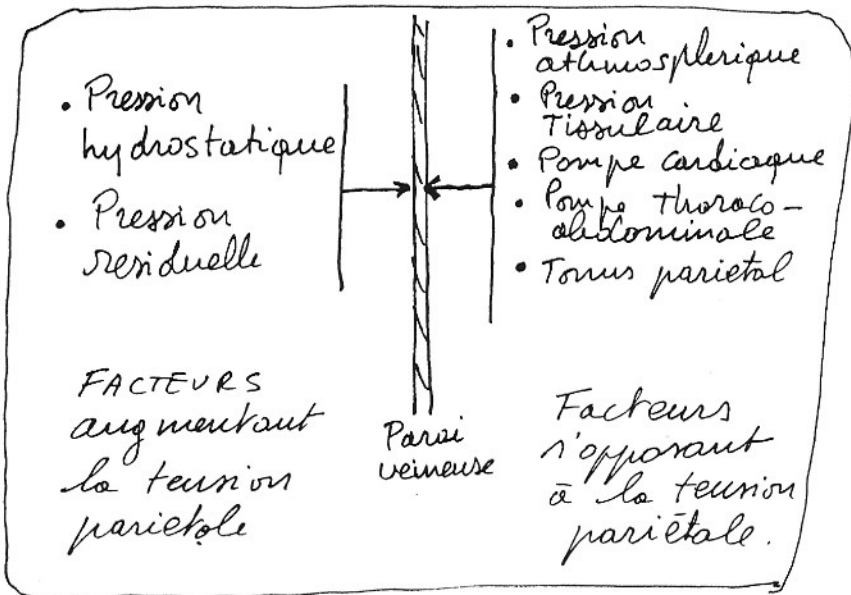 • Pression
hydrostatique
• Pression
residuelle
FACTEURS
augmentant
la tension
parietale
Paroi
veineuse
• Pression
athmospherique
• Pression
Tissulaire
• Pompe cardiaque
• Pompe thoraco-
abdominale
• Tonus parietal
Facteurs
s'opposant
à la tension
pariétale.